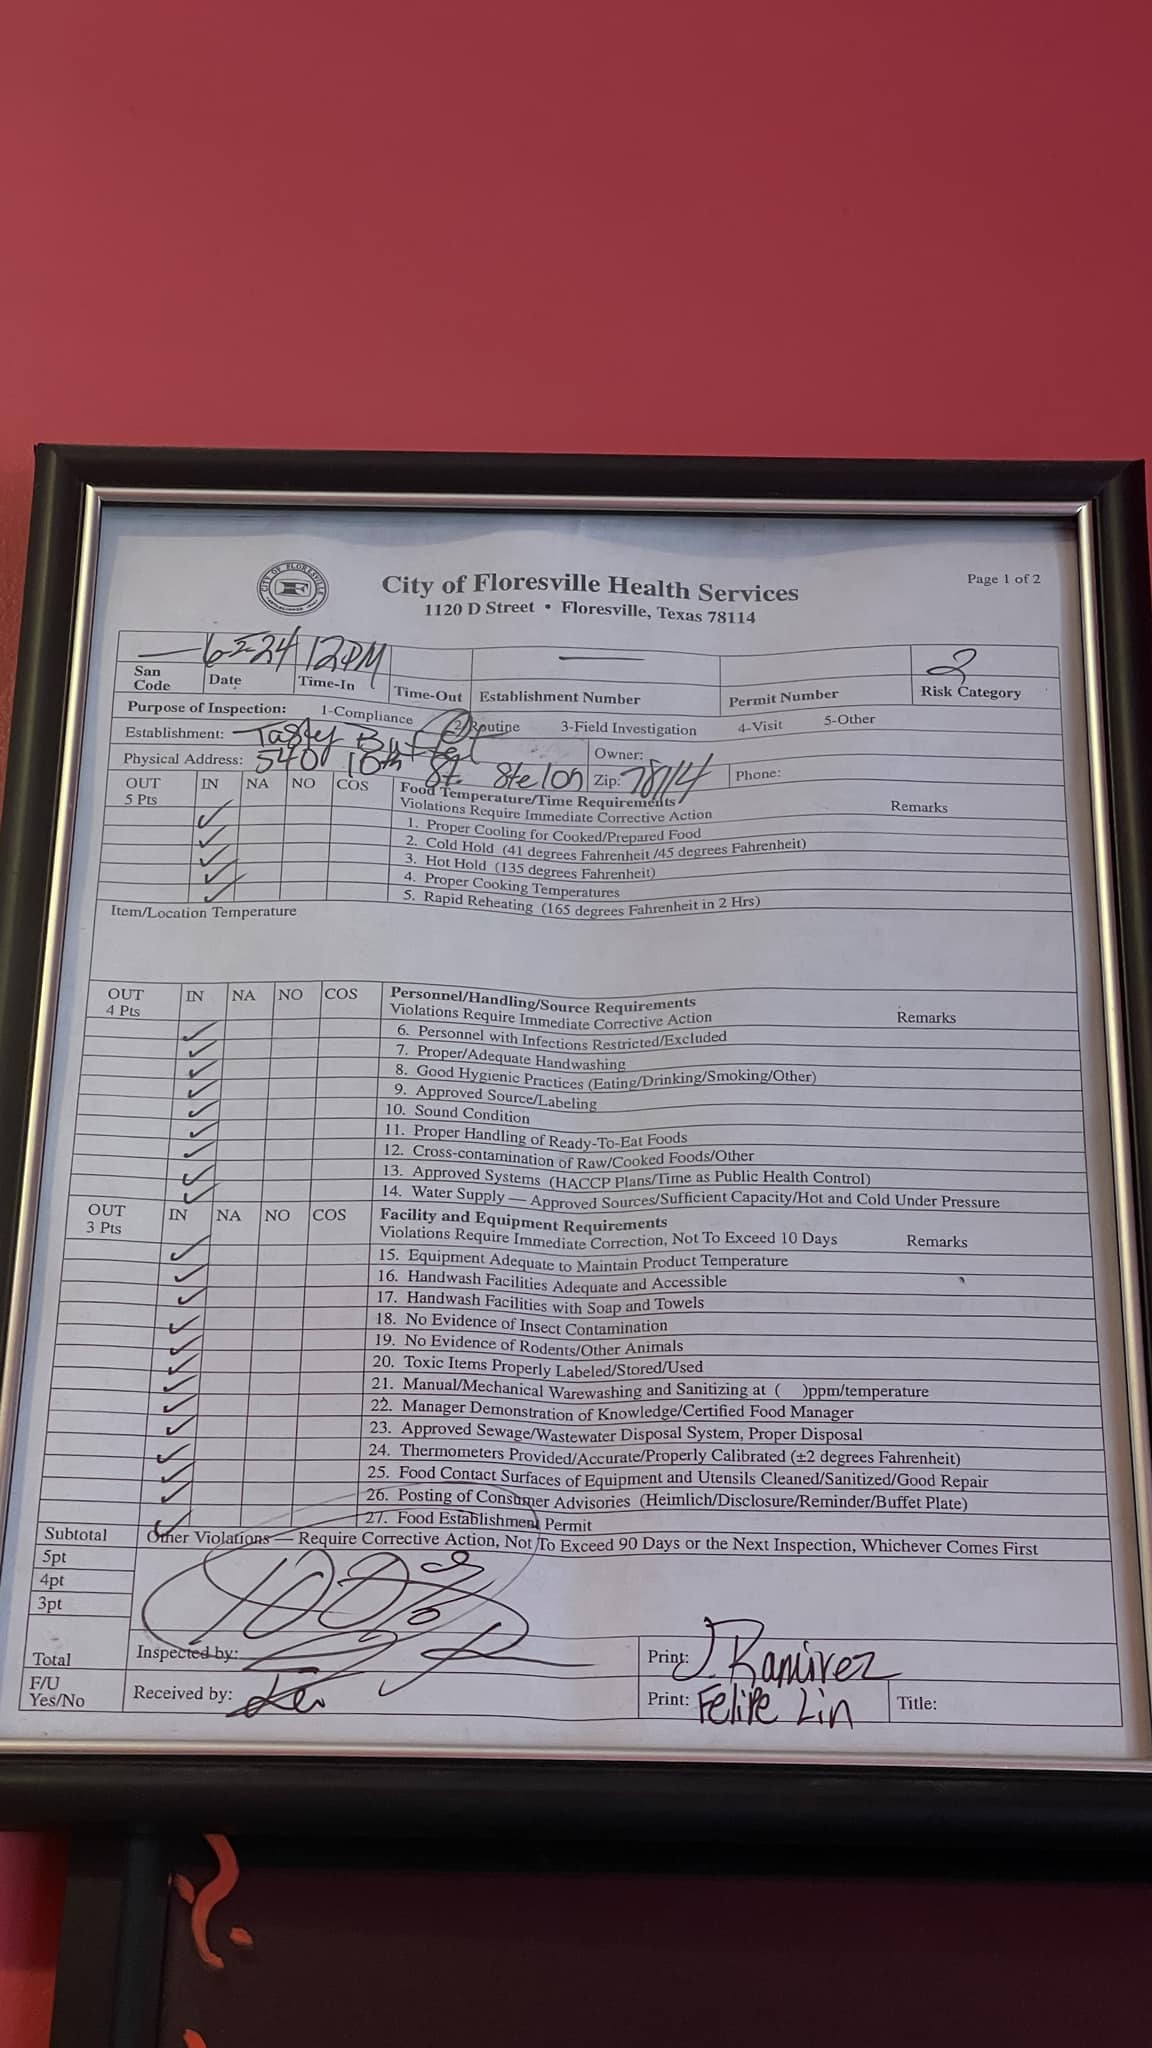 CITY OF FLORESVILLE
City of Floresville Health Services
Page 1 of 2
1120 D Street • Floresville, Texas 78114
12PM 2
San Code Date Time-In Time-Out Establishment Number Permit Number Risk Category
Purpose of Inspection: 1-Compliance 2-Routine 3-Field Investigation 4-Visit 5-Other
Establishment: Tasty Buffet Owner:
Physical Address: 540 10th St. Ste 100 Zip: 78114 Phone:
OUT 5 Pts IN NA NO COS Food Temperature/Time Requirements
Violations Require Immediate Corrective Action Remarks
1. Proper Cooling for Cooked/Prepared Food
2. Cold Hold (41 degrees Fahrenheit /45 degrees Fahrenheit)
3. Hot Hold (135 degrees Fahrenheit)
4. Proper Cooking Temperatures
5. Rapid Reheating (165 degrees Fahrenheit in 2 Hrs)
Item/Location Temperature
OUT 4 Pts IN NA NO COS Personnel/Handling/Source Requirements
Violations Require Immediate Corrective Action Remarks
6. Personnel with Infections Restricted/Excluded
7. Proper/Adequate Handwashing
8. Good Hygienic Practices (Eating/Drinking/Smoking/Other)
9. Approved Source/Labeling
10. Sound Condition
11. Proper Handling of Ready-To-Eat Foods
12. Cross-contamination of Raw/Cooked Foods/Other
13. Approved Systems (HACCP Plans/Time as Public Health Control)
14. Water Supply — Approved Sources/Sufficient Capacity/Hot and Cold Under Pressure
OUT 3 Pts IN NA NO COS Facility and Equipment Requirements
Violations Require Immediate Correction, Not To Exceed 10 Days Remarks
15. Equipment Adequate to Maintain Product Temperature
16. Handwash Facilities Adequate and Accessible
17. Handwash Facilities with Soap and Towels
18. No Evidence of Insect Contamination
19. No Evidence of Rodents/Other Animals
20. Toxic Items Properly Labeled/Stored/Used
21. Manual/Mechanical Warewashing and Sanitizing at ( )ppm/temperature
22. Manager Demonstration of Knowledge/Certified Food Manager
23. Approved Sewage/Wastewater Disposal System, Proper Disposal
24. Thermometers Provided/Accurate/Properly Calibrated (±2 degrees Fahrenheit)
25. Food Contact Surfaces of Equipment and Utensils Cleaned/Sanitized/Good Repair
26. Posting of Consumer Advisories (Heimlich/Disclosure/Reminder/Buffet Plate)
27. Food Establishment Permit
Subtotal Other Violations — Require Corrective Action, Not To Exceed 90 Days or the Next Inspection, Whichever Comes First
5pt
4pt
3pt
100%
Total Inspected by: Print: J. Ramirez
F/U Yes/No Received by: Print: Felipe Lin Title: